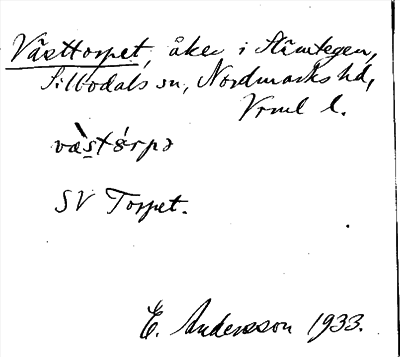 Västtorpet, åker i Stämtegen,
Silbodals sn, Nordmarks hd,
Vrml l.
SV Torpet.
E. Andersson 1933.